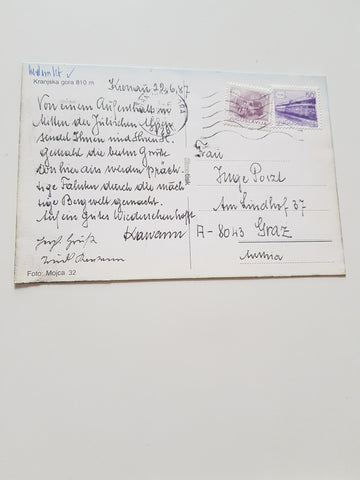 Kranjska gora 810 m
Kronau, 22.6.87
Von einem Aufenthalt in
Mitten der Julischen Alpen
sendet Ihnen und Ihnen
die besten Grüße
von hier aus werden präch-
tige Fahrten durch die mäch-
tige Bergwelt gemacht.
Auf ein gutes Wiedersehen hofft
Foto: Mojca 32
50
Frau
Inge Porzt
Am Lindhof 37
A-8043 Graz
Austria